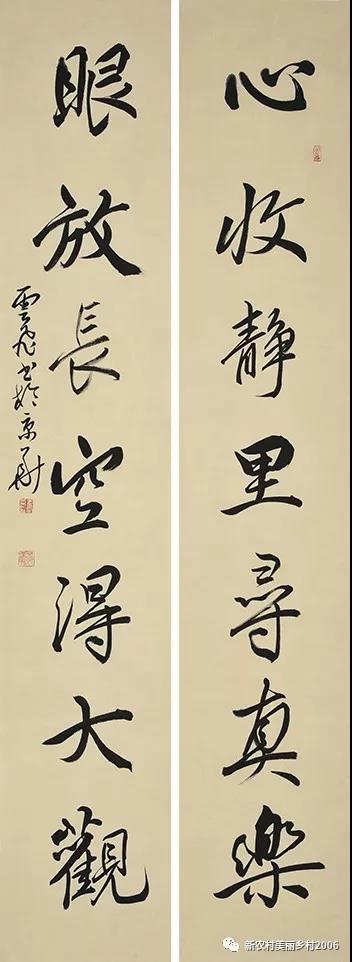 心收静里尋真樂
眼放長空得大觀
雲飛书於京華
新农村美丽乡村2006